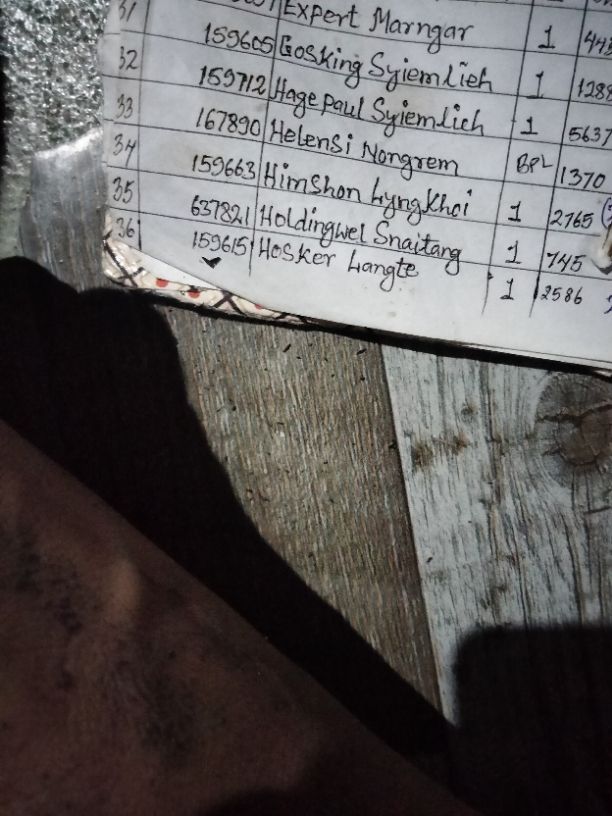 31 Expert Marngar 1
32 159605 Gosking Syiemlieh 1
33 159712 Hagepaul Syiemlich 1 5637
34 167890 Helensi Nongrem BPL 1370
35 159663 Himshon Lyngkhoi 1 2765
36 637821 Holdingwel Snaitang 1 745
159615 Hosker Langte 1 2586